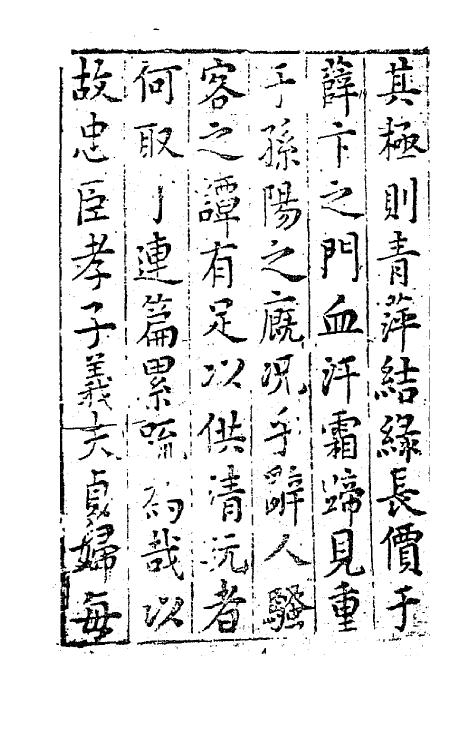 其極則青萍結緑長價于
薛卞之門血汗霜蹄見重
于孫陽之廐况乎辭人騷
客之譚有足以供清沅者
何取丁連篇累 哉以
故忠臣孝子義夫貞婦每